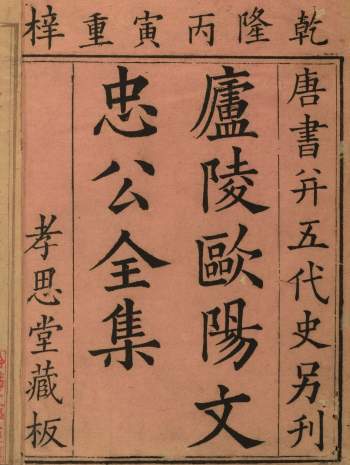 乾隆丙寅重梓
唐書并五代史另刊
廬陵歐陽文
忠公全集
孝思堂藏板